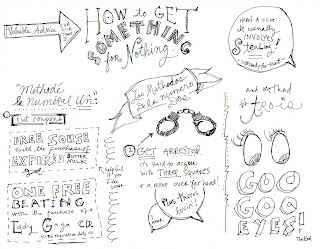 Valuable Advice
HOW to GET
SOMETHING
for Nothing
"Methodé
le Numéral Un:"
CUT COUPONS
FREE SOUSE
with the purchase of
EXPIRED BUTTER
MILK
ONE FREE
BEATING
with the purchase of a
Lady GaGa CD.
Los Methodos
de la número
Dos
① GET ARRESTED.
it's hard to argue
with THREE SQUARES
& a roof over yer head!
Plus there's
lovin'!
here's a clue:
it usually
INVOLVES
Stealing!
and method
# trois
GOO
GOO
EYES!
The End